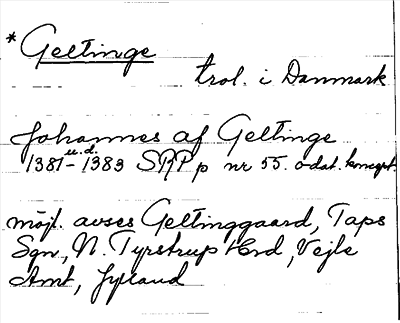 * Geltinge
trol. i Danmark
Johannes af Geltinge
u.d.
1381-1383 SRP p nr 55. odat. koncept.
möjl. avses Geltinggaard, Taps
Sgn, N. Tyrstrup Hrd, Vejle
Amt, Jylland